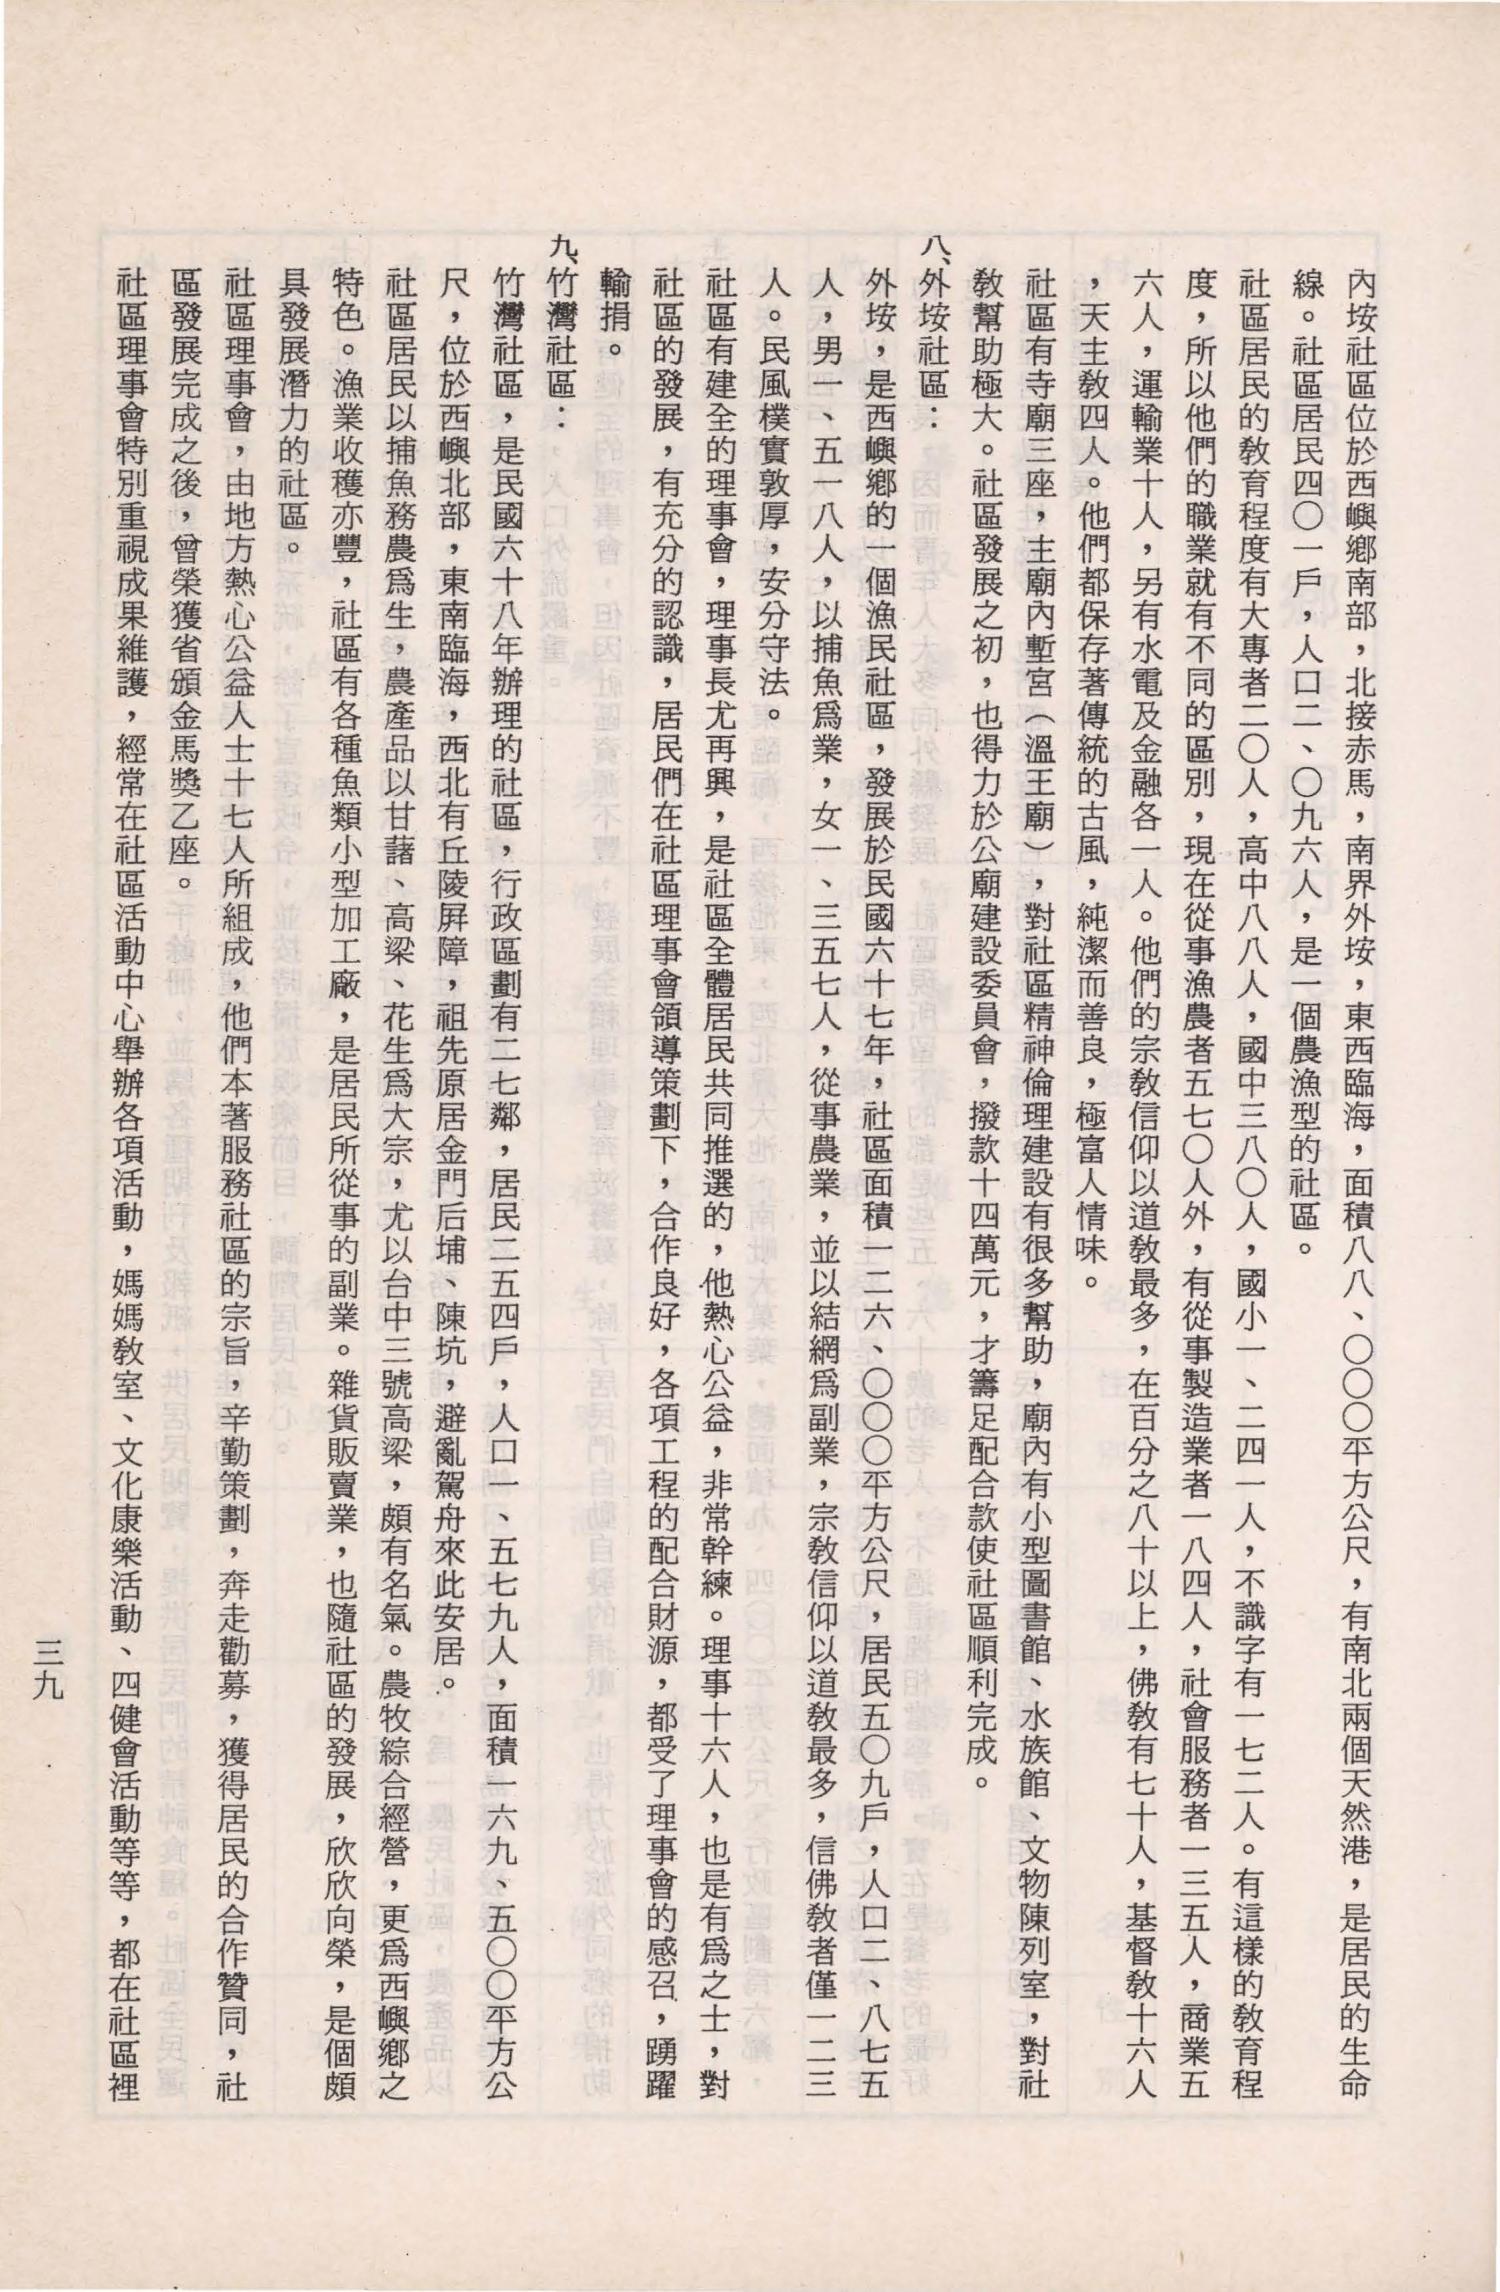 內垵社區位於西嶼鄉南部，北接赤馬，南界外垵，東西臨海，面積八八、〇〇〇平方公尺，有南北兩個天然港，是居民的生命
線。社區居民四〇一戶，人口二、〇九六人，是一個農漁型的社區。
社區居民的教育程度有大專者二〇人，高中八八人，國中三八〇人，國小一、二四一人，不識字有一七二人。有這樣的教育程
度，所以他們的職業就有不同的區別，現在從事漁農者五七〇人外，有從事製造業者一八四人，社會服務者一三五人，商業五
六人，運輸業十人，另有水電及金融各一人。他們的宗教信仰以道教最多，在百分之八十以上，佛教有七十人，基督教十六人
，天主教四人。他們都保存著傳統的古風，純潔而善良，極富人情味。
社區有寺廟三座，主廟內塹宮（溫王廟），對社區精神倫理建設有很多幫助，廟內有小型圖書館、水族館、文物陳列室，對社
教幫助極大。社區發展之初，也得力於公廟建設委員會，撥款十四萬元，才籌足配合款使社區順利完成。
八、外垵社區：
外垵，是西嶼鄉的一個漁民社區，發展於民國六十七年，社區面積一二六、〇〇〇平方公尺，居民五〇九戶，人口二、八七五
人，男一、五一八人，以捕魚爲業，女一、三五七人，從事農業，並以結網爲副業，宗教信仰以道教最多，信佛教者僅一二三
人。民風樸實敦厚，安分守法。
社區有建全的理事會，理事長尤再興，是社區全體居民共同推選的，他熱心公益，非常幹練。理事十六人，也是有爲之士，對
社區的發展，有充分的認識，居民們在社區理事會領導策劃下，合作良好，各項工程的配合財源，都受了理事會的感召，踴躍
輸捐。
九、竹灣社區：
竹灣社區，是民國六十八年辦理的社區，行政區劃有二七鄰，居民二五四戶，人口一、五七九人，面積一六九、五〇〇平方公
尺，位於西嶼北部，東南臨海，西北有丘陵屏障，祖先原居金門后埔、陳坑，避亂駕舟來此安居。
社區居民以捕魚務農爲生，農產品以甘藷、高梁、花生爲大宗，尤以台中三號高梁，頗有名氣。農牧綜合經營，更爲西嶼鄉之
特色。漁業收穫亦豐，社區有各種魚類小型加工廠，是居民所從事的副業。雜貨販賣業，也隨社區的發展，欣欣向榮，是個頗
具發展潛力的社區。
社區理事會，由地方熱心公益人士十七人所組成，他們本著服務社區的宗旨，辛勤策劃，奔走勸募，獲得居民的合作贊同，社
區發展完成之後，曾榮獲省頒金馬獎乙座。
社區理事會特別重視成果維護，經常在社區活動中心舉辦各項活動，媽媽教室、文化康樂活動、四健會活動等等，都在社區裡
三九